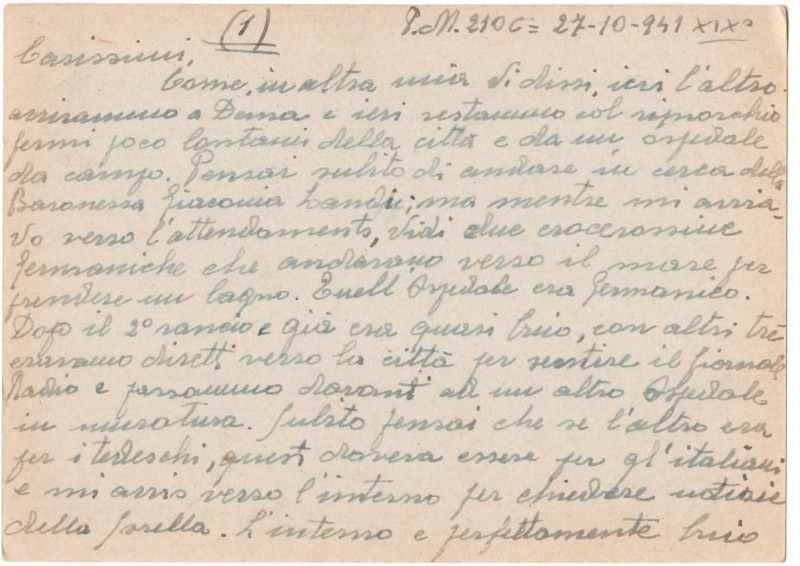 (1) P.M. 210 C = 27-10-941 XIXº
Carissimi,
Come, in altra mia Vi dissi, ieri l'altro
arrivammo a Derna e ieri restammo col rimorchio
fermi poco lontani della città e da un ospedale
da campo. Pensai subito di andare in cerca della
Baronessa Giacoma; ma mentre mi avvia-
vo verso l'attendamento, vidi due crocerossine
germaniche che andavano verso il mare per
prendere un bagno. Quell'Ospedale era germanico.
Dopo il 2º rancio e già era quasi buio, con altri tre
eravamo diretti verso la città per sentire il giornale
Radio e passammo davanti ad un altro Ospedale
in muratura. Subito pensai che se l'altro era
per i tedeschi, questi doveva essere per gl'italiani
e mi avvio verso l'interno per chiedere notizie
della. L'interno e perfettamente buio